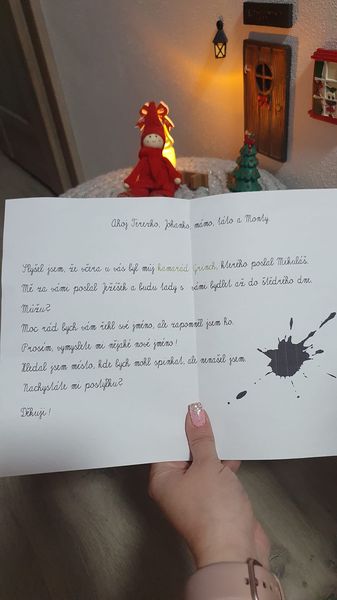 Ahoj Terezko, Johanko, mámo, táto a Monty.
Slyšel jsem, že včera u vás byl můj kamarád Grinch, kterého poslal Mikuláš.
Mě za vámi poslal Ježíšek a budu tady s vámi bydlet až do štědrého dne.
Můžu?
Moc rád bych vám řekl své jméno, ale zapomněl jsem ho.
Prosím, vymyslete mi nějaké nové jméno!
Hledal jsem místo, kde bych mohl spinkat, ale nenašel jsem.
Nachystáte mi postýlku?
Děkuji!